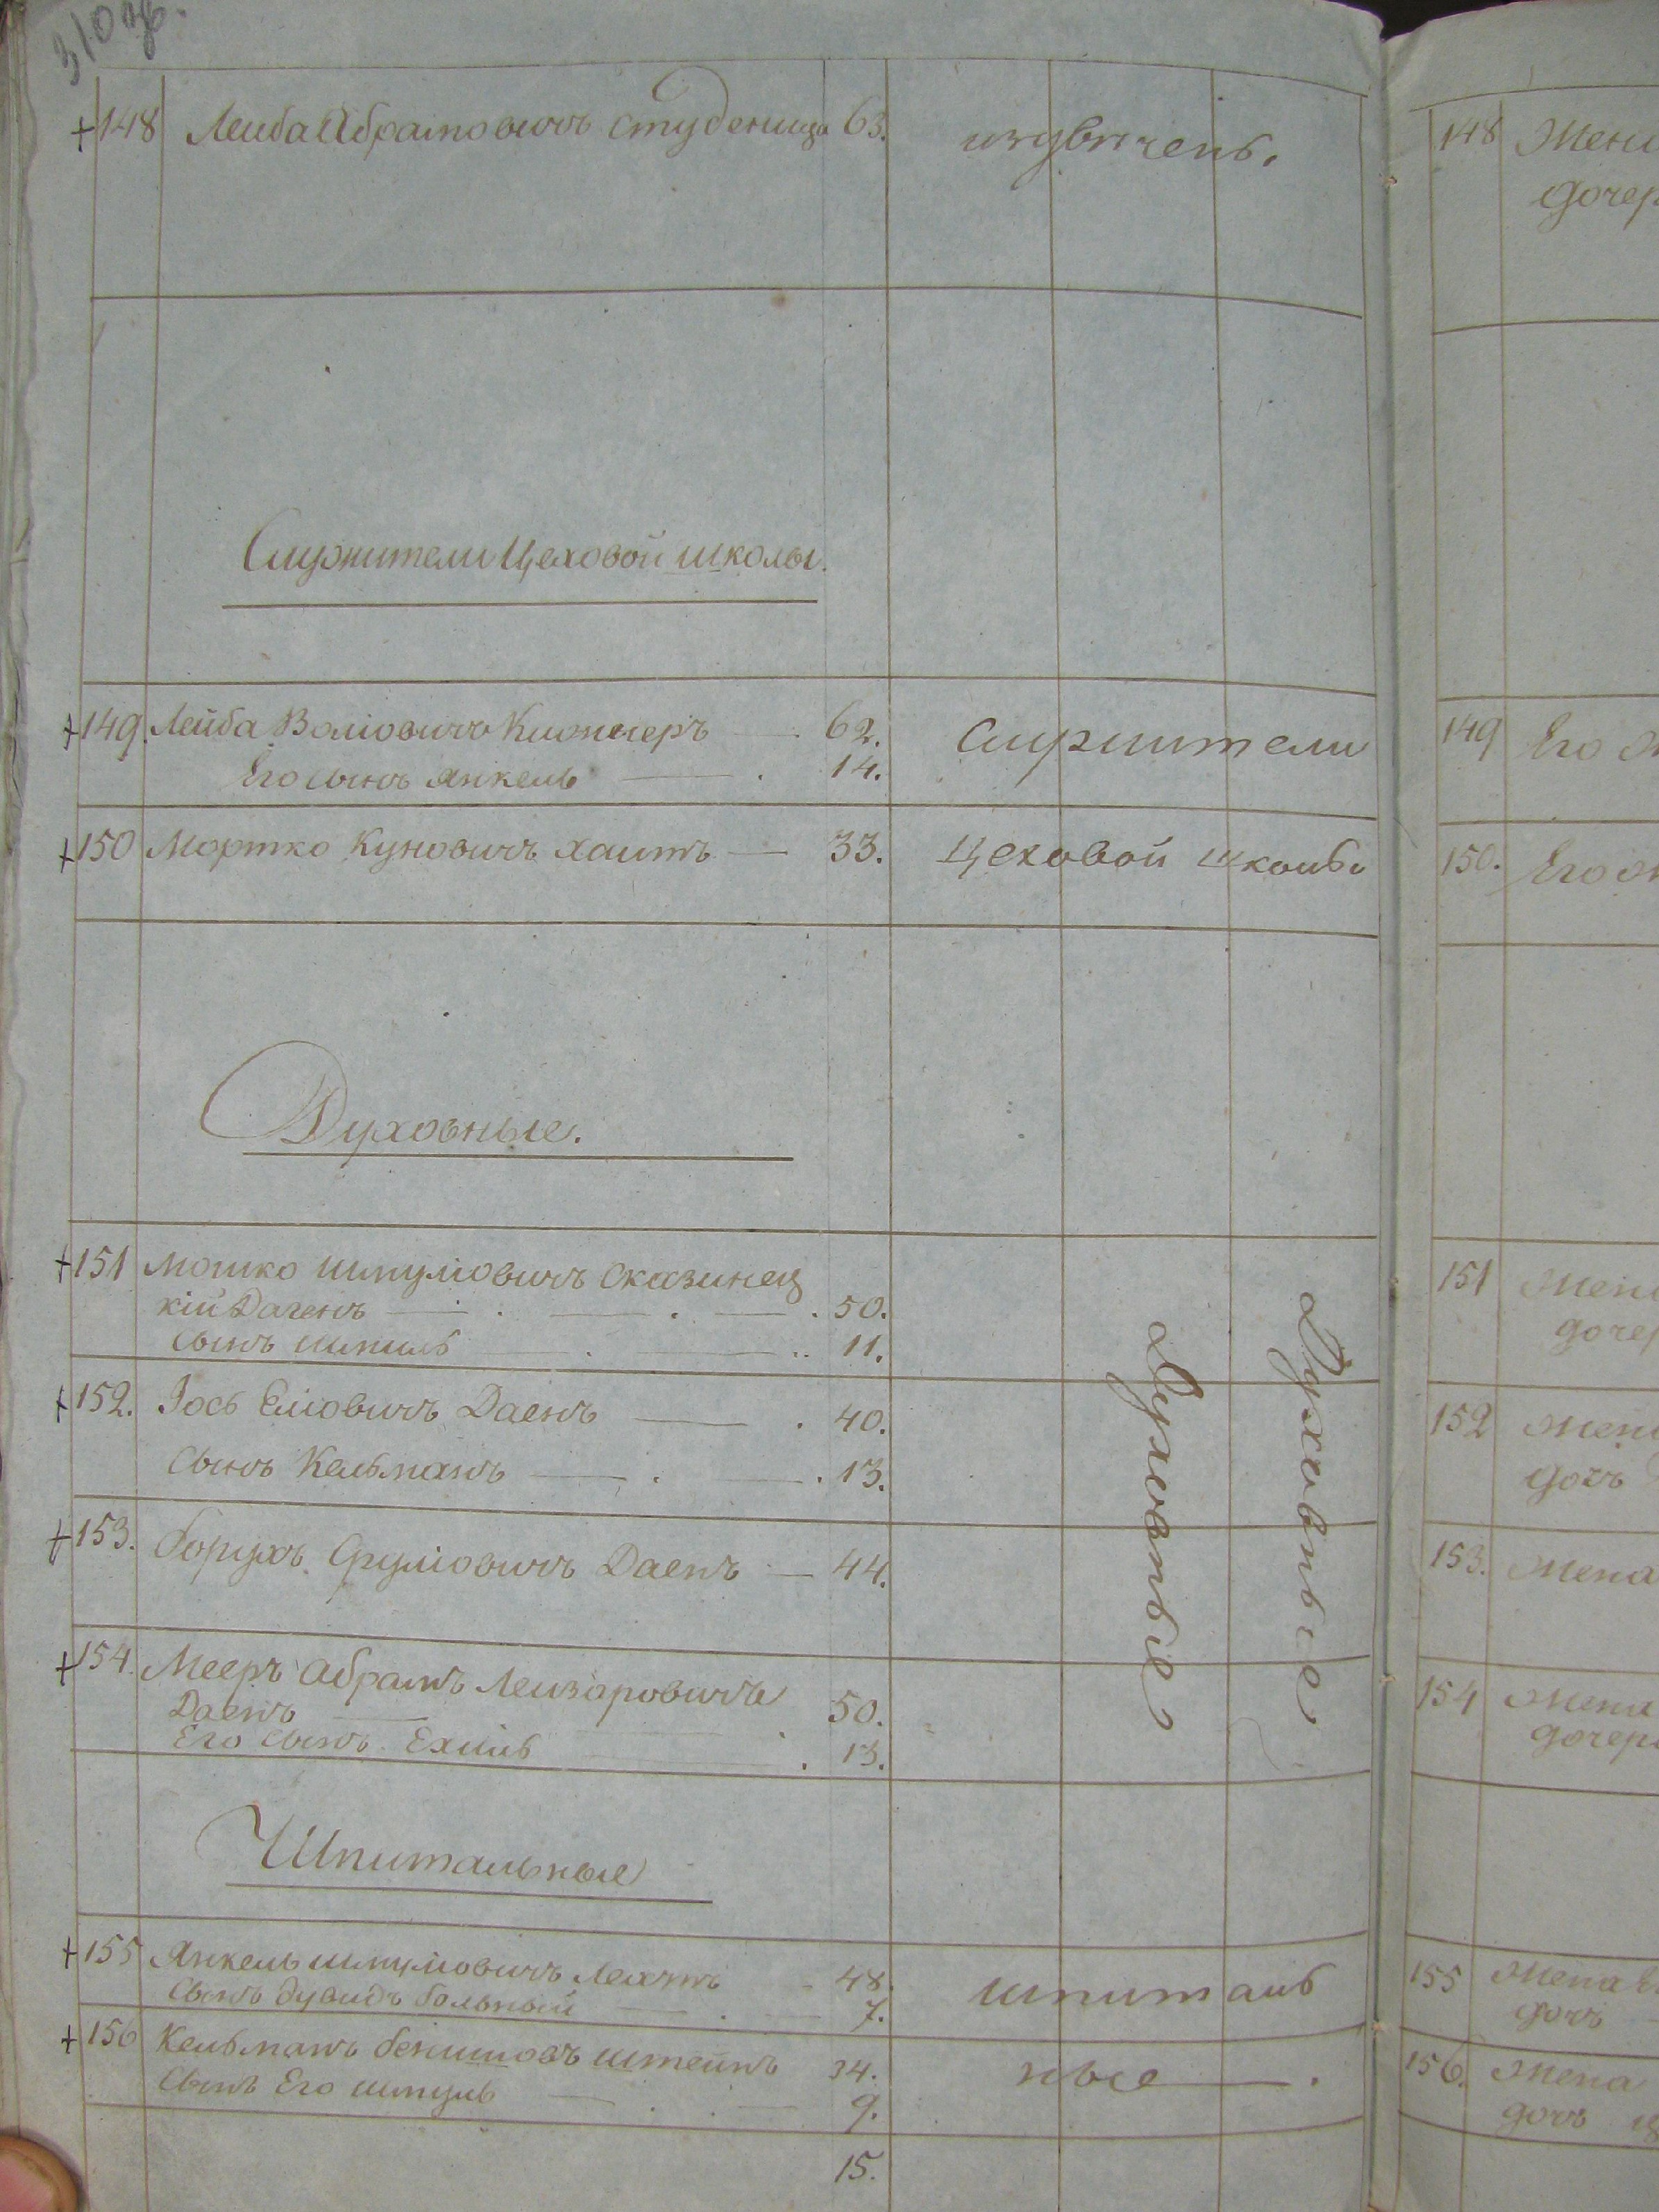 310 об.
148 Леиба Абрамовичъ Студеница 63. изувѣчень.
Служители Цеховой школы.
149. Лейба Волiовичъ 62. служители
Его сынъ Янкель 14.
150 Мортко Куновичъ Хаитъ 33. Цеховой школы
Духовные.
151 Мошко Шмулiовичъ Сказинец
кiй Даенъ 50.
Сынъ 11.
152. Iось Елiовичъ Даенъ 40.
Сынъ Кельманъ 13.
153. Борухъ Срулiовичъ Даенъ 44.
154. Мееръ Абрамъ Леизаровичъ
Даенъ 50.
Его Сынъ Ехиль 13.
Духовные
Духовные
Шпитальные
155 Янкель Шмулiовичъ 48. шпиталь
Сынъ Дувидъ больный 7.
156 Кельманъ Штейнъ 34. ные
Сынъ Его Шмуль 9.
15.
148 Жена
дочер
149 Его
150. Его
151 Жена
дочер
152 Жена
дочь
153. Жена
154 Жена
дочер
155 Жена
дочь
156. Жена
дочь